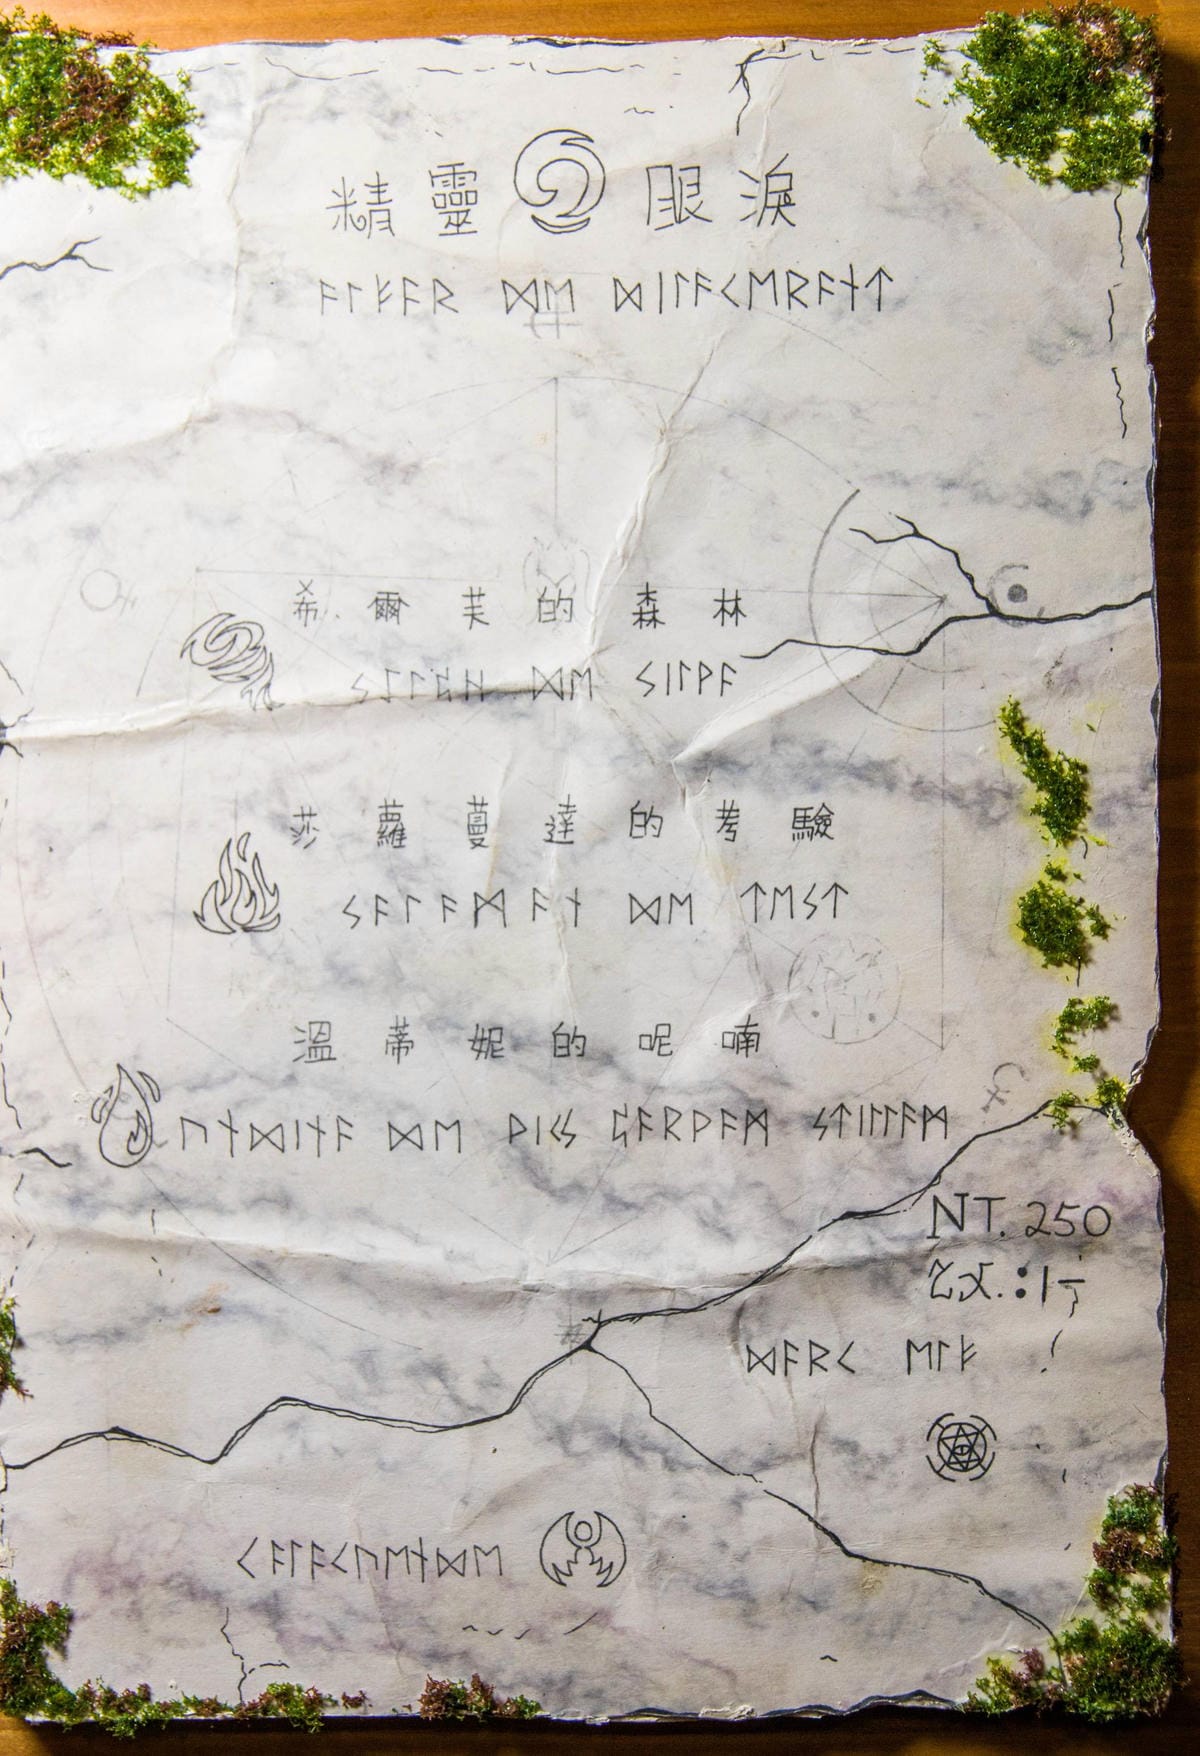 精靈眼淚
ᚨᛚᚠᚨᚱ ᛞᛖ ᛞᛁᛚᚨᚲᛖᚱᚨᚾᛏ
希爾芙的森林
ᛊᛇᛚᛈᚺ ᛞᛖ ᛊᛁᛚᚹᚨ
莎蘿蔓達的考驗
ᛊᚨᛚᚨᛗᚨᚾ ᛞᛖ ᛏᛖᛊᛏ
溫蒂妮的呢喃
ᚢᚾᛞᛁᚾᚨ ᛞᛖ ᚦᛁᚲᛊ ᛈᚨᚱᚹᚨᛗ ᛊᛏᛁᛚᛚᚨᛗ
NT. 250
ᛞᚨᚱᚲ ᛖᛚᚠ
ᚲᚨᛚᚨᚲᚢᛖᚾᛞᛖ